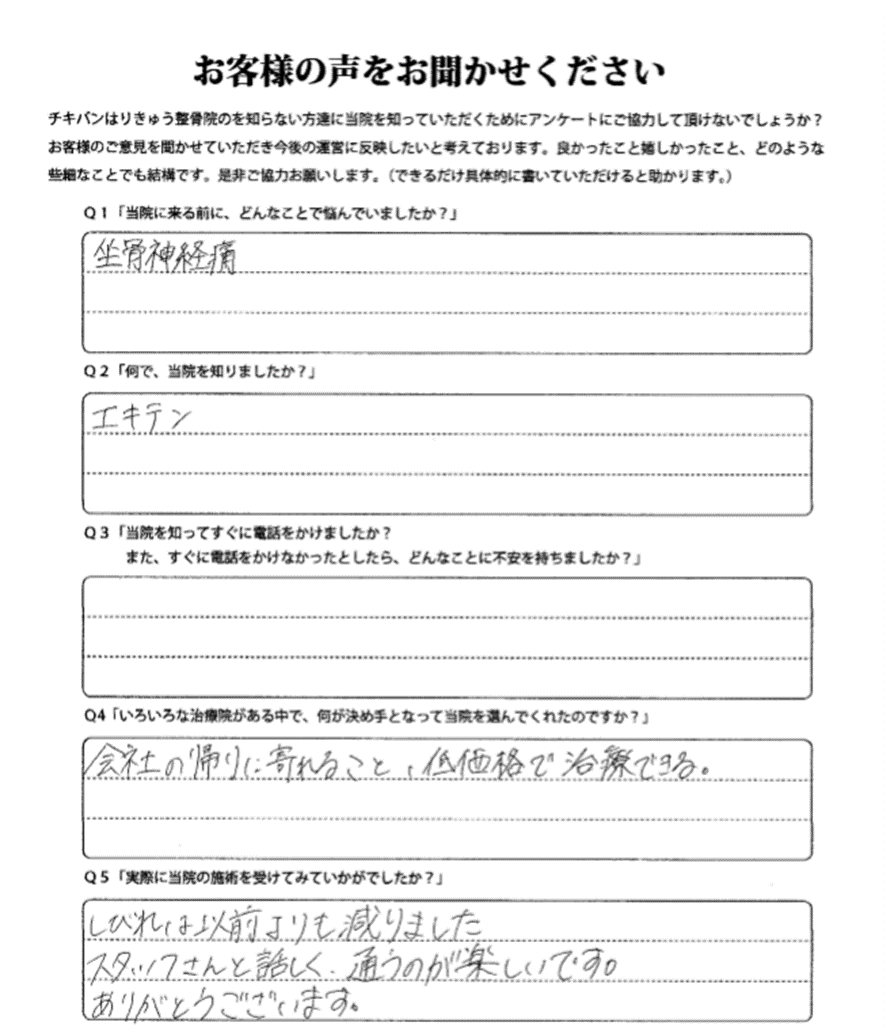 お客様の声をお聞かせください
チキバンはりきゅう整骨院のを知らない方達に当院を知っていただくためにアンケートにご協力して頂けないでしょうか？
お客様のご意見を聞かせていただき今後の運営に反映したいと考えております。良かったこと嬉しかったこと、どのような
些細なことでも結構です。是非ご協力お願いします。（できるだけ具体的に書いていただけると助かります。）
Q1「当院に来る前に、どんなことで悩んでいましたか？」
坐骨神経痛
Q2「何で、当院を知りましたか？」
エキテン
Q3「当院を知ってすぐに電話をかけましたか？
また、すぐに電話をかけなかったとしたら、どんなことに不安を持ちましたか？」
Q4「いろいろな治療院がある中で、何が決め手となって当院を選んでくれたのですか？」
会社の帰りに寄れること、低価格で治療できる。
Q5「実際に当院の施術を受けてみていかがでしたか？」
しびれは以前よりも減りました
スタッフさんと話しく、通うのが楽しいです。
ありがとうございます。